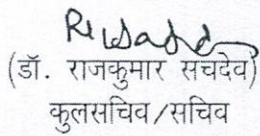 (डॉ. राजकुमार सचदेव)
कुलसचिव/सचिव